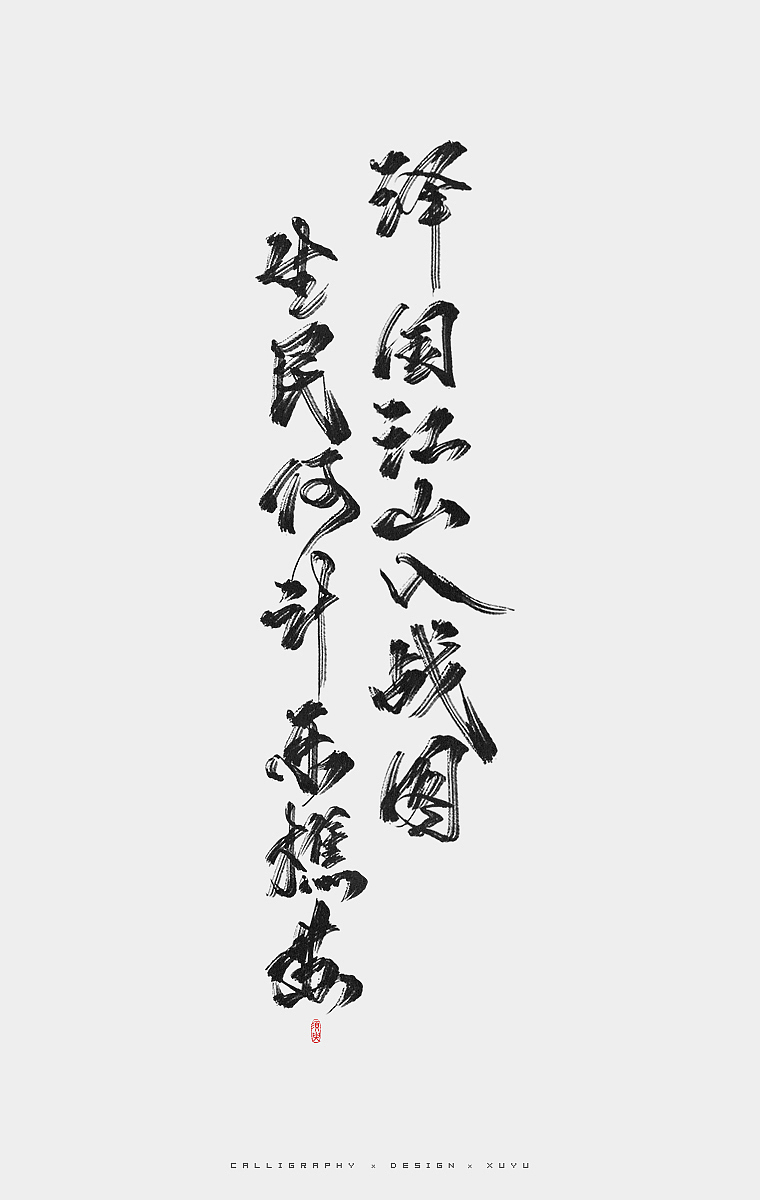 泽国江山入战图
生民何计乐樵苏
CALLIGRAPHY × DESIGN × XUYU